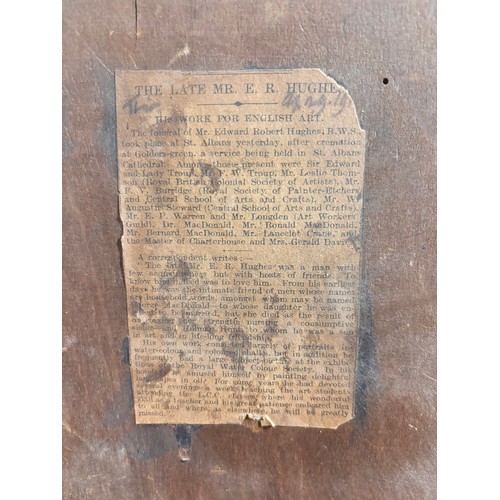 THE LATE MR. E. R. HUGHES
HIS WORK FOR ENGLISH ART.
The funeral of Mr. Edward Robert Hughes, R.W.S.,
took place at St. Albans yesterday, after cremation
at Golders-green, a service being held in St. Albans
Cathedral. Among those present were Sir Edward
and Lady Troup, Mr. F. W. Troup, Mr. Leslie Thom-
son (Royal British Colonial Society of Artists), Mr.
F. V. Burridge (Royal Society of Painter-Etchers
and Central School of Arts and Crafts), Mr. W.
Augustin Steward (Central School of Arts and Crafts),
Mr. E. P. Warren and Mr. Longden (Art Workers'
Guild), Dr. MacDonald, Mr. Ronald MacDonald,
Mr. Bernard MacDonald, Mr. Lancelot Crane, and
the Master of Charterhouse and Mrs. Gerald Davies.
A correspondent writes:—
The late Mr. E. R. Hughes was a man with
few acquaintances but with hosts of friends. To
know him indeed was to love him. From his earliest
days he was the intimate friend of men whose names
are household words, amongst whom may be named
George MacDonald—to whose daughter he was en-
to be married, but she died as the result of
her strength nursing a consumptive
and Holman Hunt, to whom he was a sun
and a life-long friendship.
His own work consisted largely of portraits in
water-colour and coloured chalks, but in addition he
frequently had a large subject-picture at the exhibi-
tions of the Royal Water Colour Society. In his
he amused himself by painting delightful
in oil. For some years he had devoted
evenings a week teaching the art students
attending the L.C.C. classes, where his wonderful
as a teacher and his great patience endeared him
to all and where, as elsewhere, he will be greatly
missed.